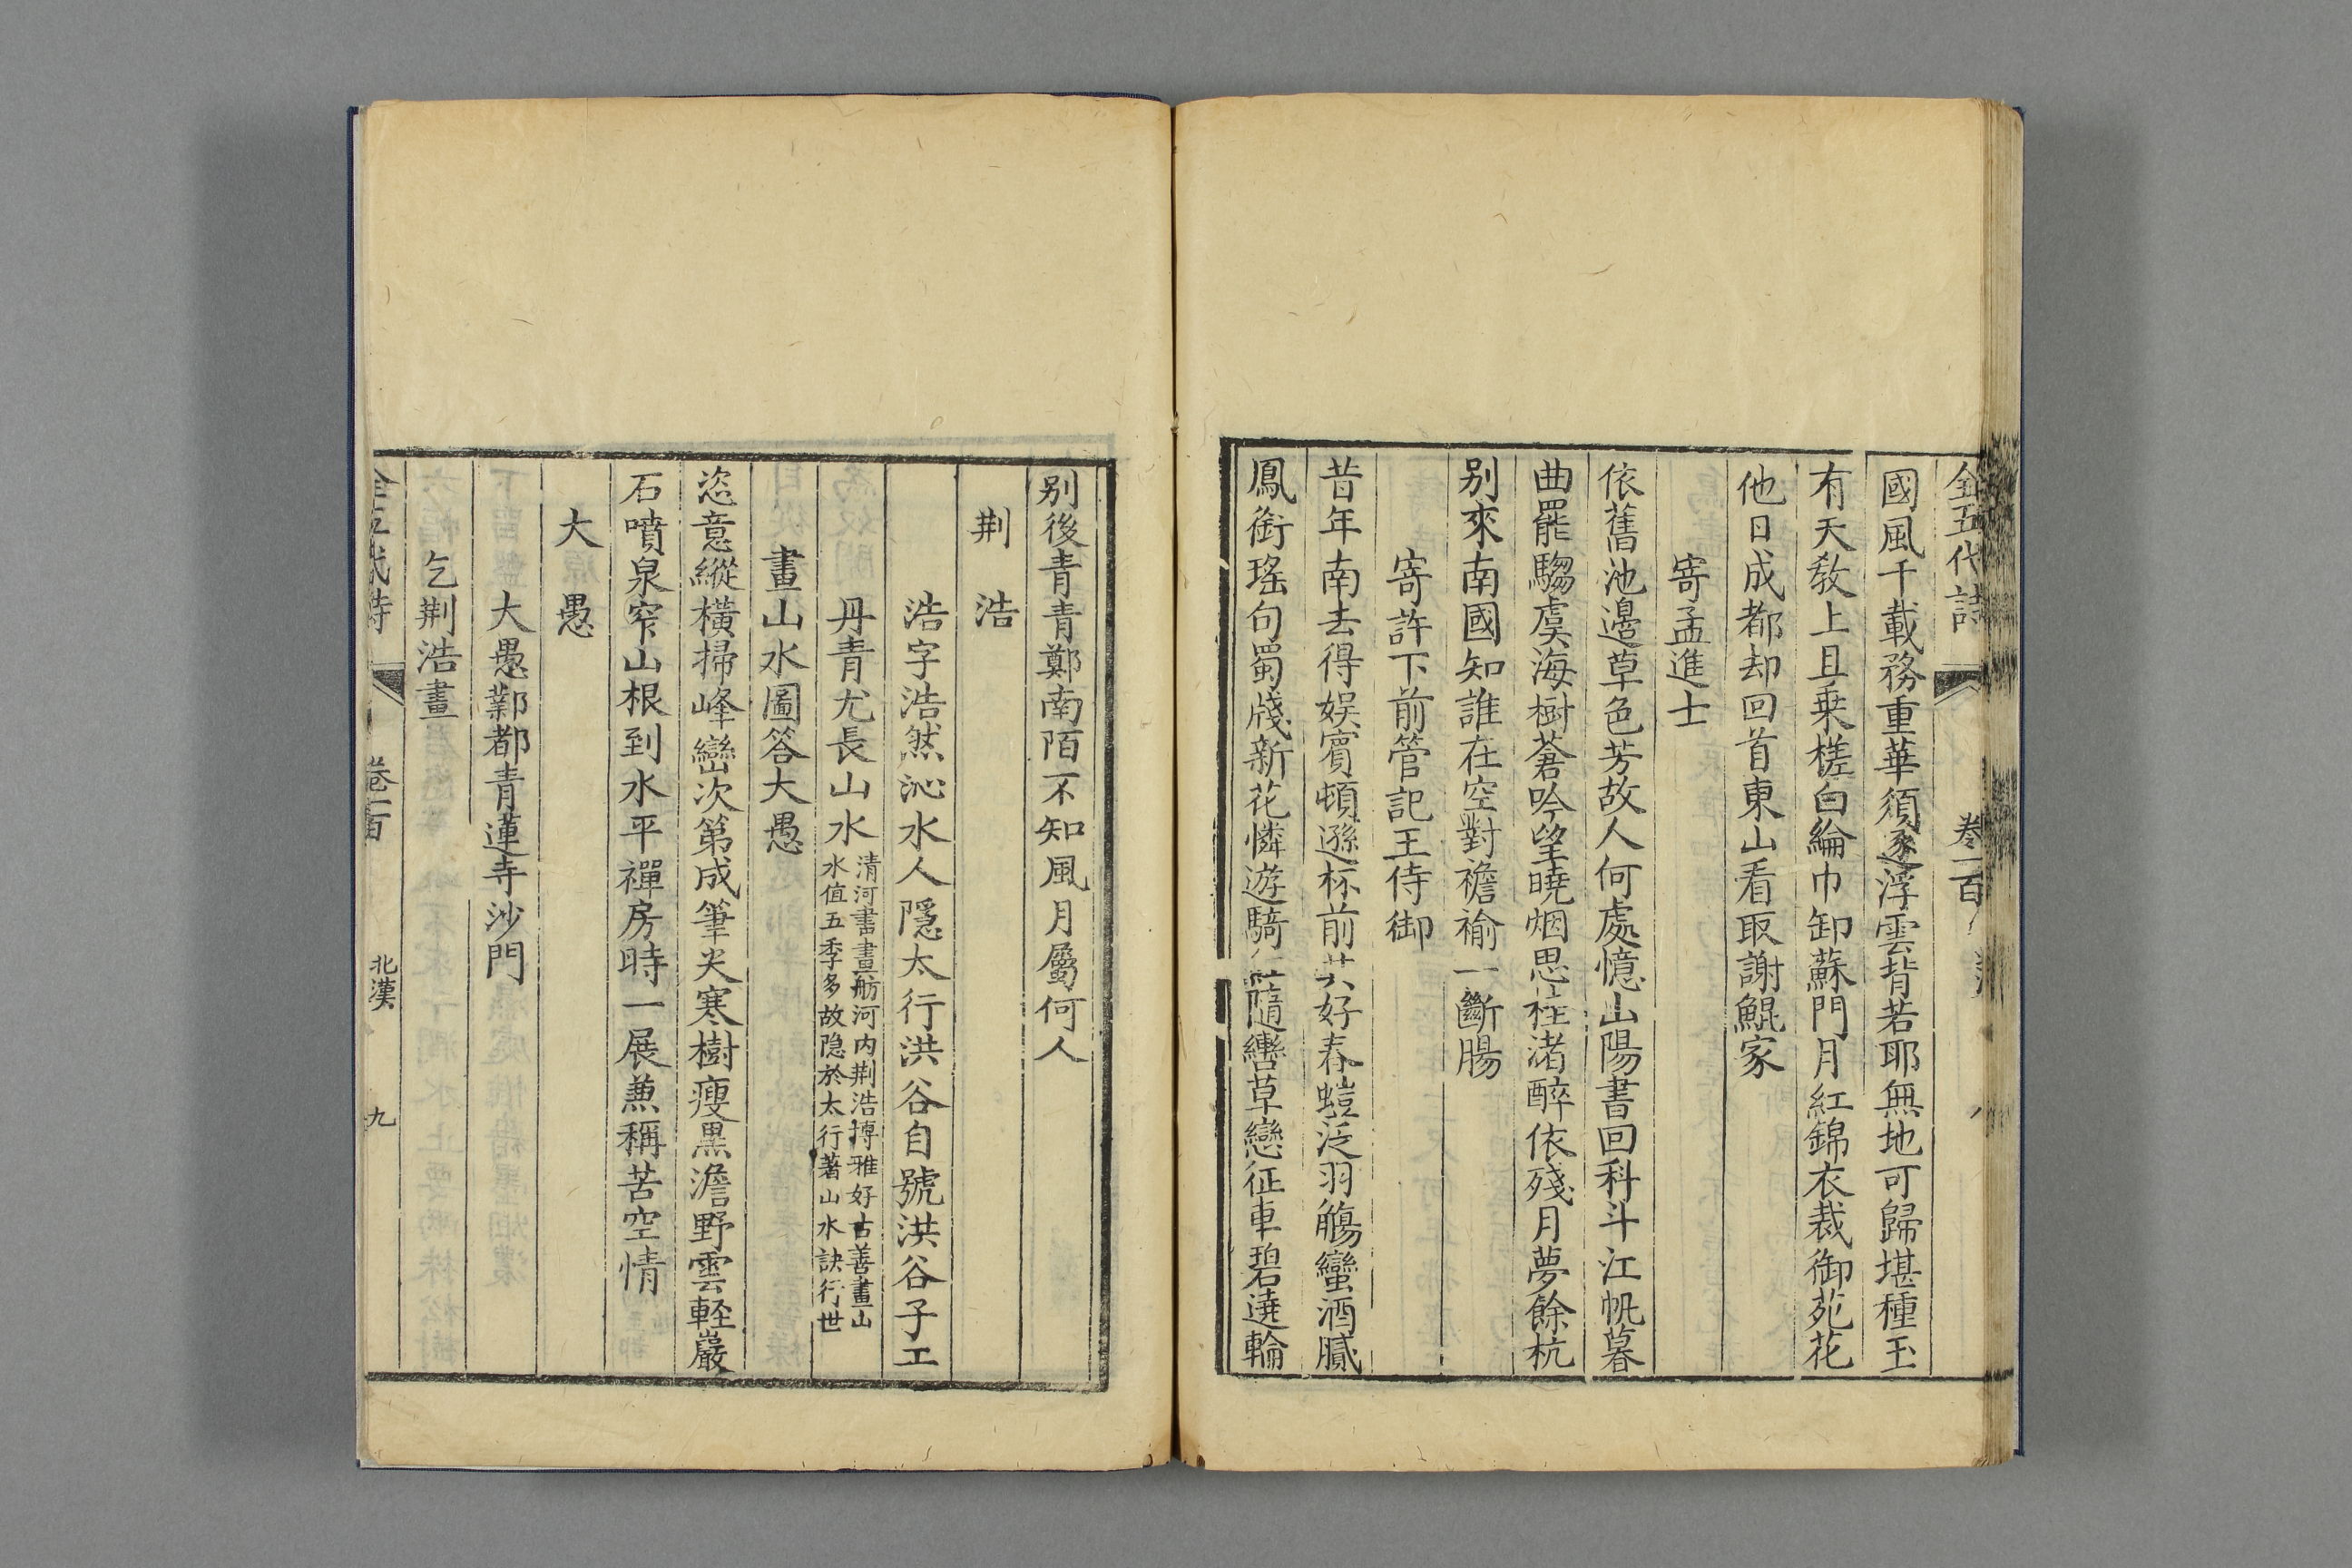 全五代詩 卷一百
國風千載務重華須逐浮雲背若耶無地可歸堪種玉
有天敎上且乗槎白綸巾卸蘇門月紅錦衣裁御苑花
他日成都却回首東山看取謝鯤家
寄孟進士
依舊池邉草色芳故人何處憶山陽書回科斗江帆暮
曲罷騶虞海樹蒼吟望曉烟思桂渚醉依殘月夢餘杭
别來南國知誰在空對襜褕一斷腸
寄許下前管記王侍御
昔年南去得娱賓頓遜杯前共好春螘泛羽觴蠻酒膩
鳳銜瑤句蜀牋新花憐遊騎紅隨轡草戀征車碧遶輪
别後青青鄭南陌不知風月屬何人
荆浩
浩字浩然沁水人隱太行洪谷自號洪谷子工
丹青尤長山水清河書畫舫河内荆浩博雅好古善畫山
水值五季多故隐於太行著山水訣行世
畫山水圖答大愚
恣意縱横掃峰巒次第成筆尖寒樹瘦黒澹野雲軽巖
石噴泉窄山根到水平禪房時一展兼稱苦空情
大愚
大愚鄴都青蓮寺沙門
乞荆浩畫
全五代詩 卷一百 北漢 九